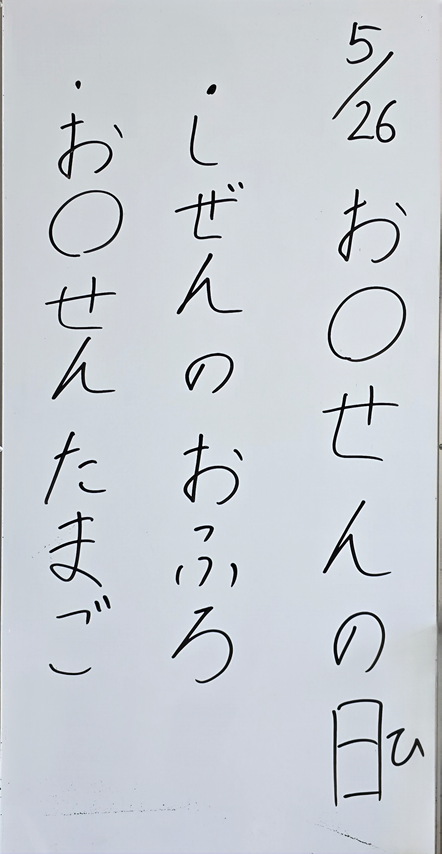 5/26 お〇せんの日
ひ
・しぜんのおふろ
・お〇せんたまご